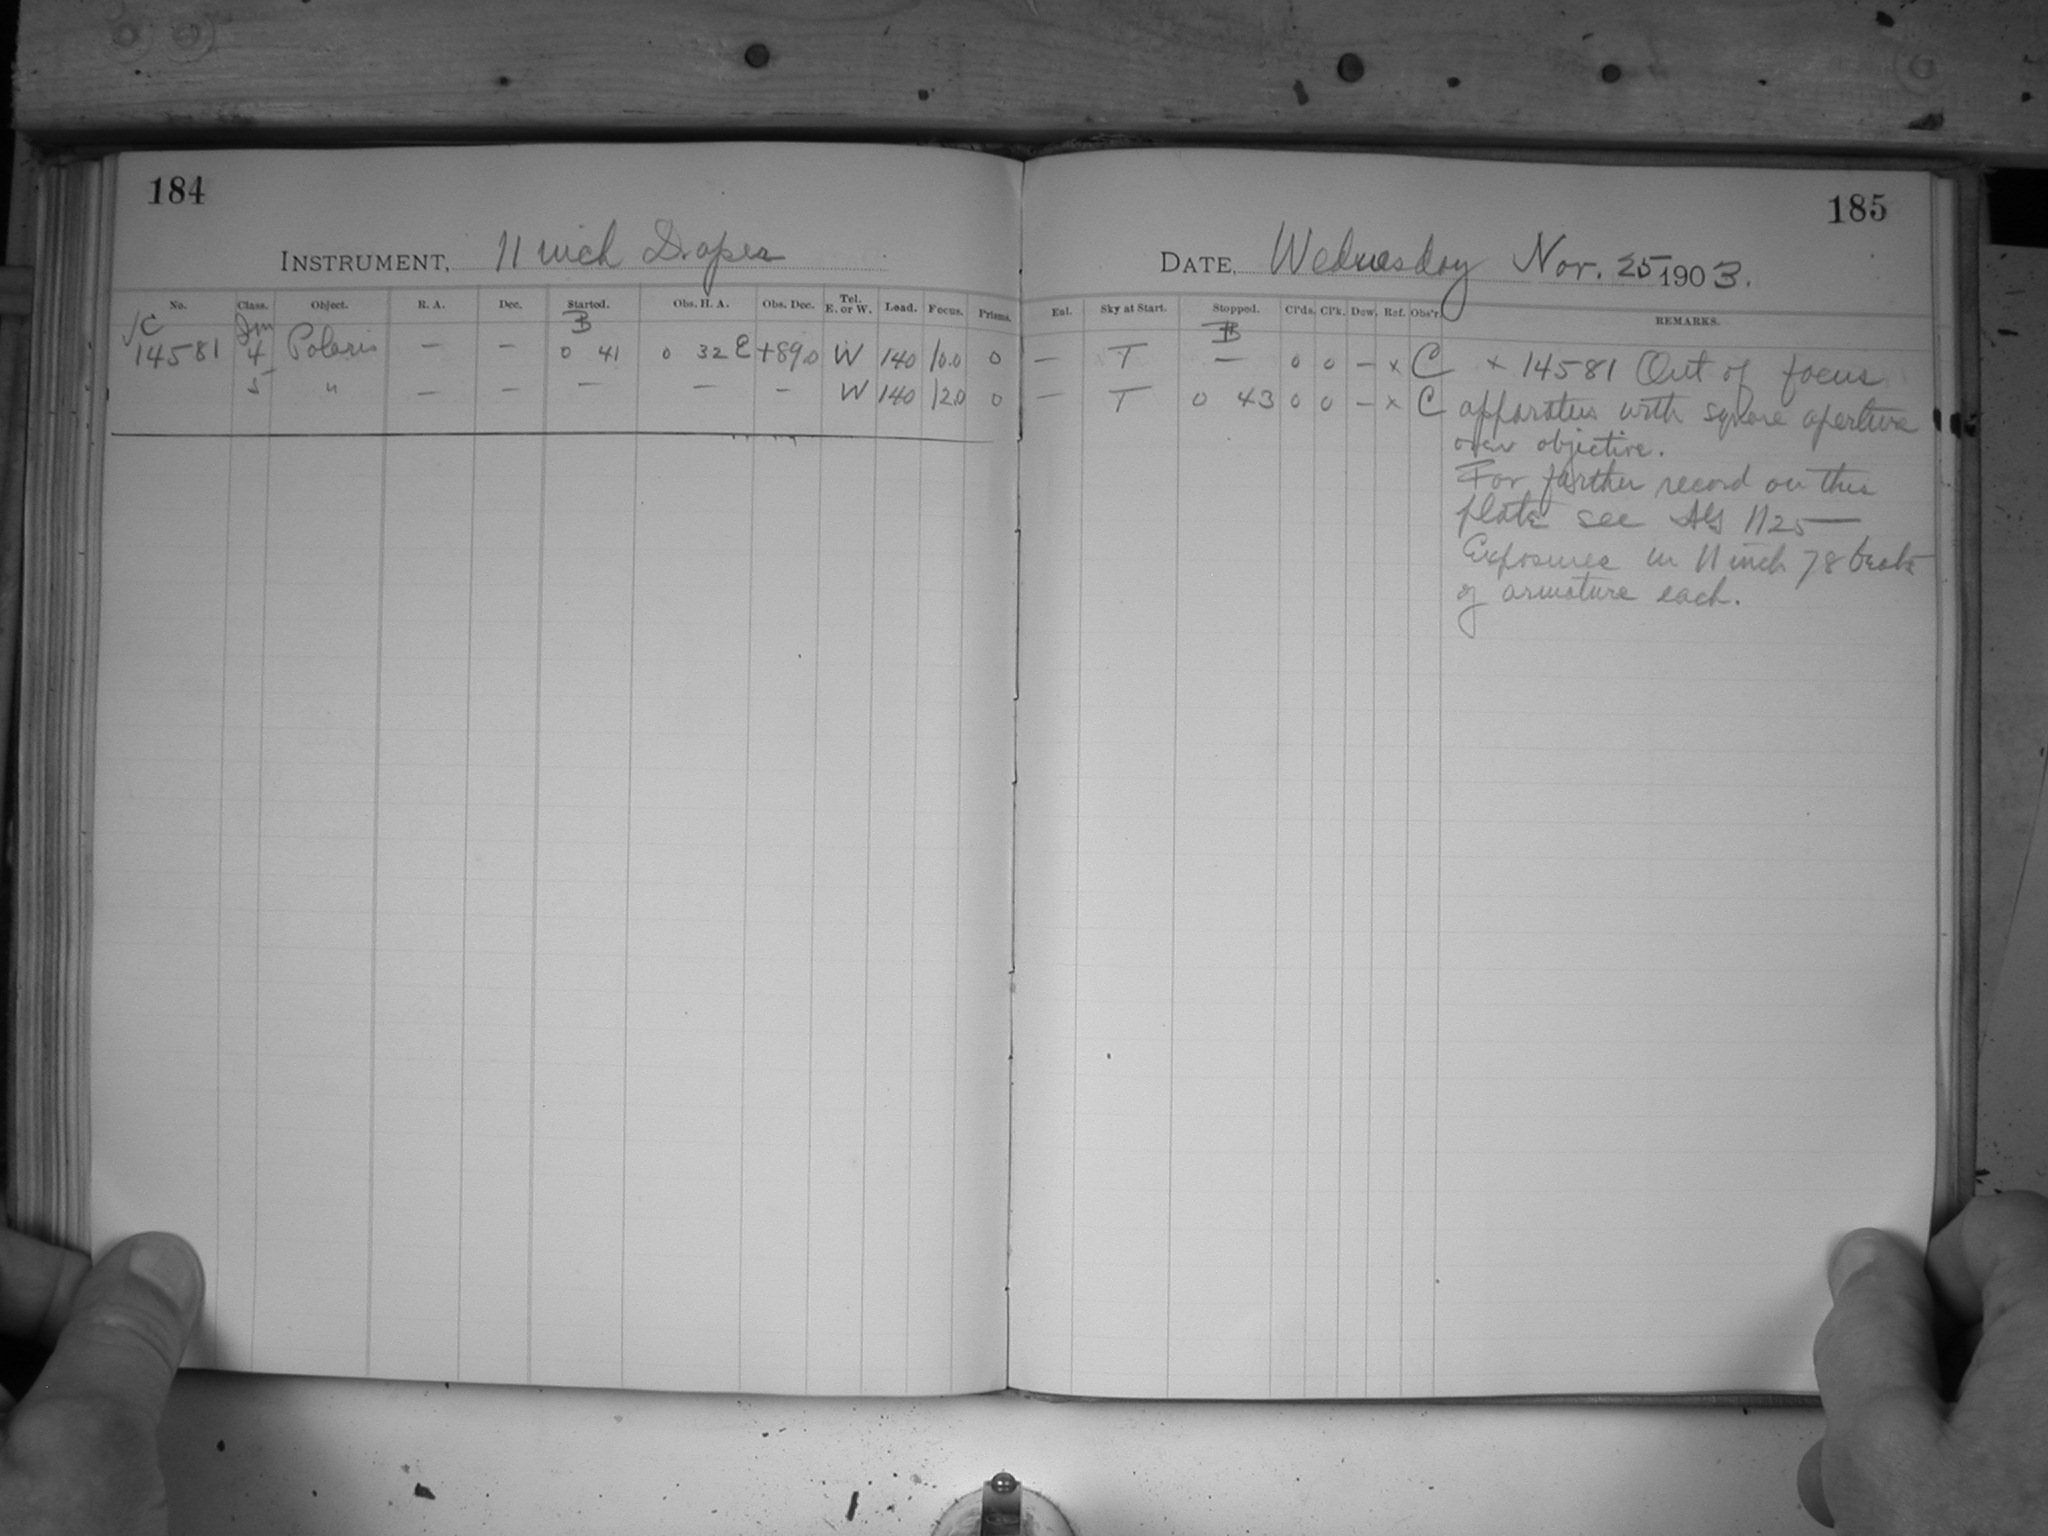 184
185
INSTRUMENT, 11 inch Draper
DATE, Wednesday Nov. 25 1903.
No. Class. Object. R. A. Dec. Started. Obs. H. A. Obs. Dec. Tel. E. or W. Load. Focus. Prisms. Eal. Sky at Start. Stopped. Cl'ds. Cl'k. Dew. Ref. Obs'r. REMARKS.
√C Jm B B
14581 4 Polaris — — 0 41 0 32 E +89.0 W 140 10.0 0 — T — 0 0 — x C x 14581 Out of focus
5 " — — — — — W 140 12.0 0 — T 0 43 0 0 — x C apparatus with square aperture
over objective.
For farther record on this
plate see 1125—
Exposures in 11 inch 78 beats
of armature each.